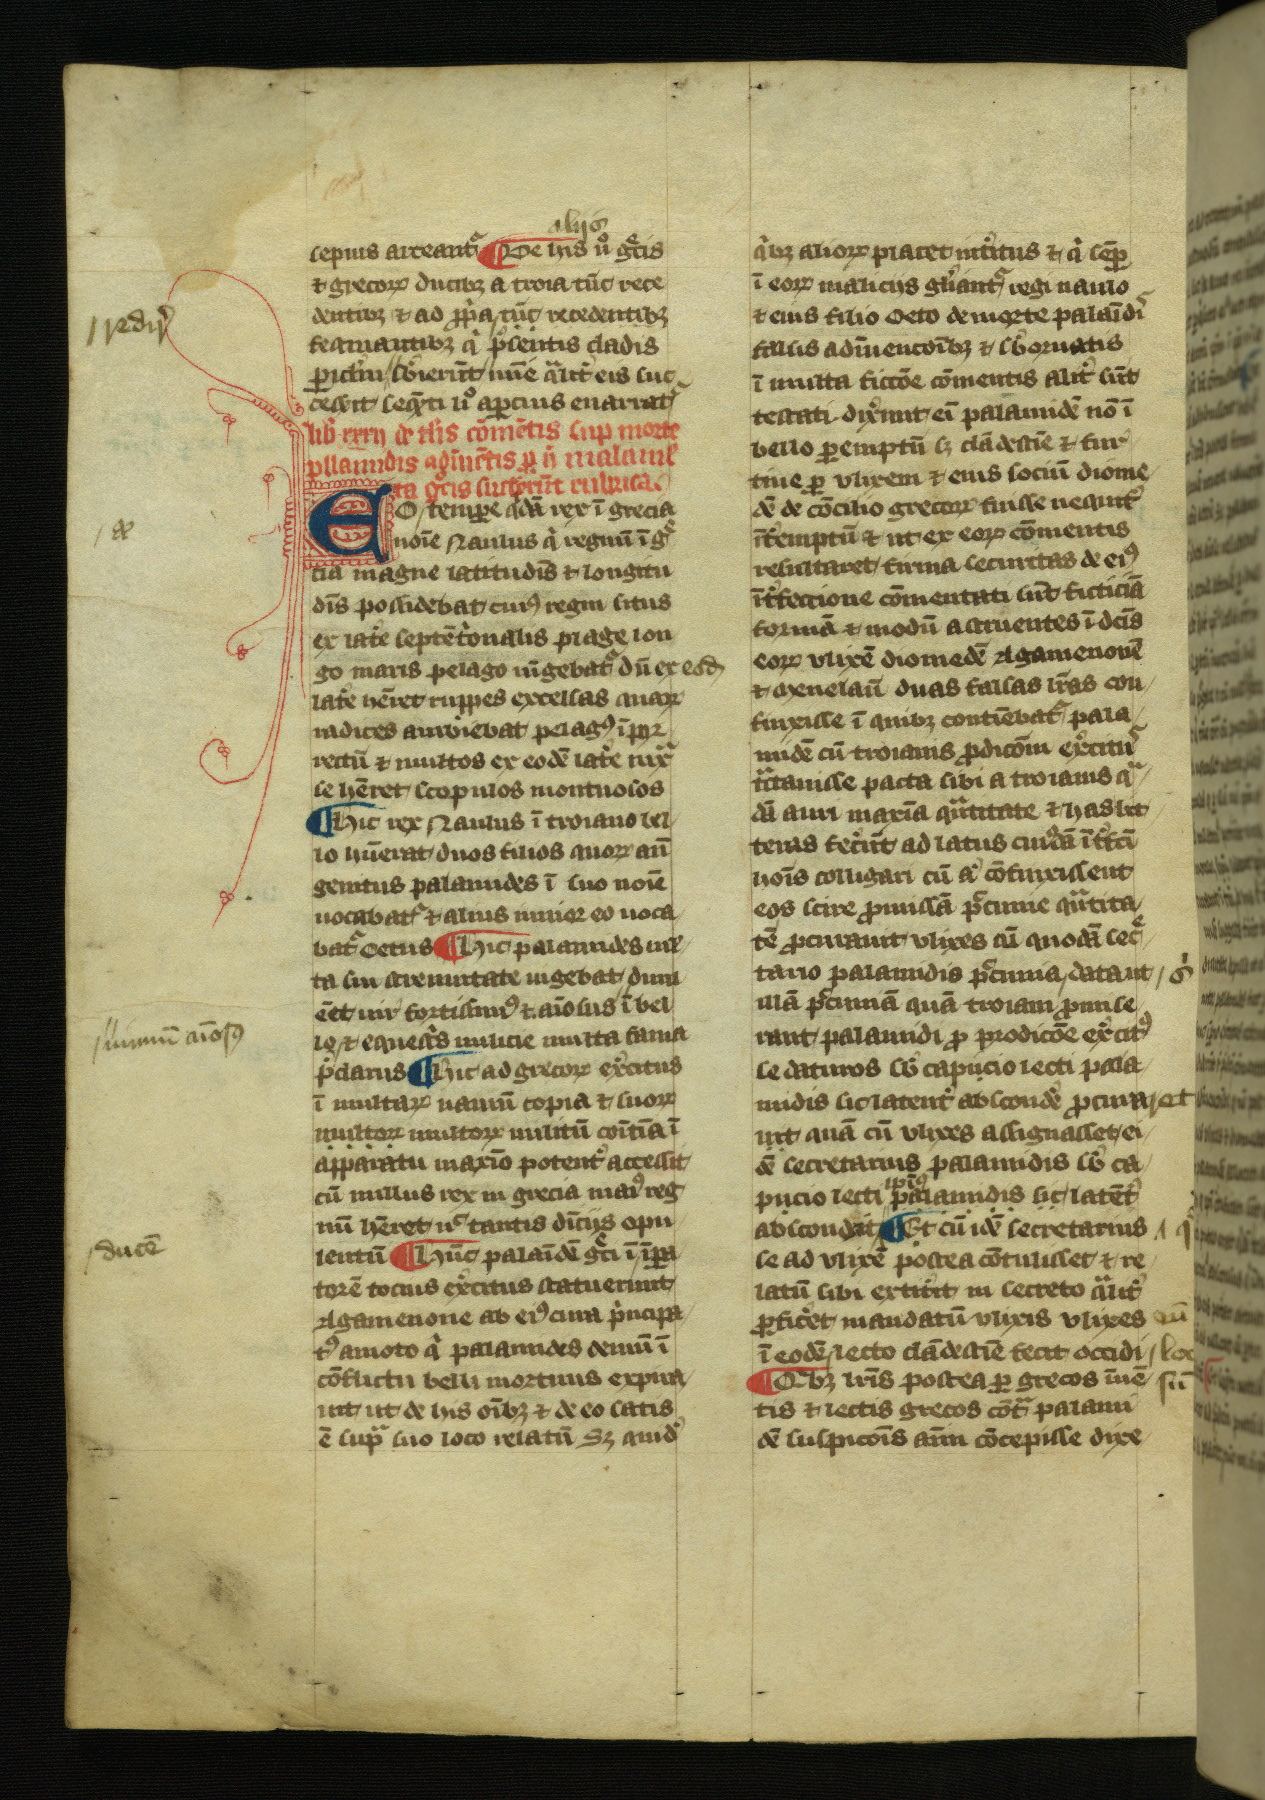 aliis
sepius arceantᷣ De hiis vͦ grͤcis
⁊ grecoꝝ ducibꝫ a troia tūc rece
dentibꝫ ⁊ ad ꝓpͥa tūc recedentibꝫ
festinantibꝫ qͥ pͥsentis cladis
ꝑiclͫm sb̓ierūt nūc qͣlit̓ eis suc
cessit seqͤnti vͦ aꝑcius enarratᷣ
lib̓ xxxij de flīs cōmētis suꝑ morte
pallamidis adīuētis ꝑ
ta grͤcis
EO tempore qͥdā rex ī grecia
noīe Naulus qͥ regnū ī gͤ
cia magne latitudīs ⁊ longitu
dīs possidebat cuiꝰ regni situs
ex late septētͥonalis plage lon
go maris pelago iūgebatᷣ dū ex eodē
late hēret ruppes excelsas quaꝝ
radices ambiebat pelagꝰ
rectū ⁊ multos ex eodē late iuxͣ
se hēret scopulos montuosos
Hic rex Naulus ī troiano bel
lo hūerat duos filios quoꝝ aū
genitus palamides ī suo noīe
uocabatᷣ ⁊ alius iunior eo uoca
batᷣ Oetus Hic palamides ml̓
ta sui strenuitate uigebat dum
eēt uir fortissimꝰ ⁊ aīosus ī bel
lo ⁊ equestͥs milicie multa fama
pͥclarus Hic ad grecoꝝ exͤcitus
ī multaꝝ nauiū copia ⁊ suoꝝ
multoꝝ multoꝝ militū comitīa ī
apparatu maxīo potent̓ accessit
cū nullus rex in grecia maiꝰ reg
nū hēret nͨ tantis diūcijs opu
lentū Hūc palaīdē grͤci ī īꝑa
torē tocius exͤcitus statuerunt
Agamenone ab eiꝰ cura pͥncipa
tꝰ amoto qͥ palamides demū ī
cōflictu belli mortuus expira
uit ut de his oībꝫ ⁊ de eo satis
ē supͣ suo loco relatū Sꝫ quid̓
qͥbꝫ alioꝝ placet intͥtus ⁊ qͥ sēꝑ
ī eoꝝ malicijs glͥiantᷣ regi naulo
⁊ eius filio Oeto de morte palaīdiˢ
falsis adīuencōibꝫ ⁊ sb̓ornatis
ī multa ficcōe cōmentis alit̓ sūt
testati dixͤrunt eī palamidē nō ī
bello ꝑemptū sꝫ clādestīe ⁊ fur
tiue ꝑ vlixem ⁊ eius sociū diome
dē de cōcilio grecoꝝ fuisse nequit̓
īt̓emptū ⁊ ut ex eoꝝ cōmentis
resultaret firma securitas de eiꝰ
īt̓fectione cōmentati sūt ficticiā
formā ⁊ modū astruentes ī dc̄is
eoꝝ vlixē diomedē Agamenonē
⁊ Menelaū duas falsas lr̄as con
finxisse ī quibꝫ contīebatᷣ pala
midē cū troianis ꝓdicōm exͤcitꝰ
tͣctauisse pacta sibi a troianis qͣ
dā auri maxīa qͣntitate ⁊ has lit
teras fec̓unt ad latus cuiꝰdā īt̓fc̄i
hoīs colligari cū qͣ cōfinxissent
eos scire ꝓmissā pͤcunie qͣntita
tē ꝓcurauit vlixes cū quodā secͤ
tario palamidis pͤcunia datant
illā pͤcuniā quā troiani ꝓmise
rant palamidi ꝓ prodicōe exͤcitꝰ
se daturos sb̓ capucio lecti pala
midis sic latent̓ abscondē ꝓcura
uit quā cū vlixes assignasset ei
dē secretarius palamidis sb̓ ca
pucio lecti palamidis sic latēt̓
ipīꝰ
abscondit Et cū idē secretarius
se ad vlixē postea cōtulisset ⁊ re
latū sibi extitit in secreto qͣlit̓
ꝑficͤet mandatū vlixis vlixes
ī eodē lecto clādestīe fecit occidi
Qͥbꝫ lr̄is postea ꝑ grecos īuē
tis ⁊ lectis grecos cōtͣ palami
dē suspicōis aīm cōcepisse dixe
⁊
summū aīosꝰ
ducē
et